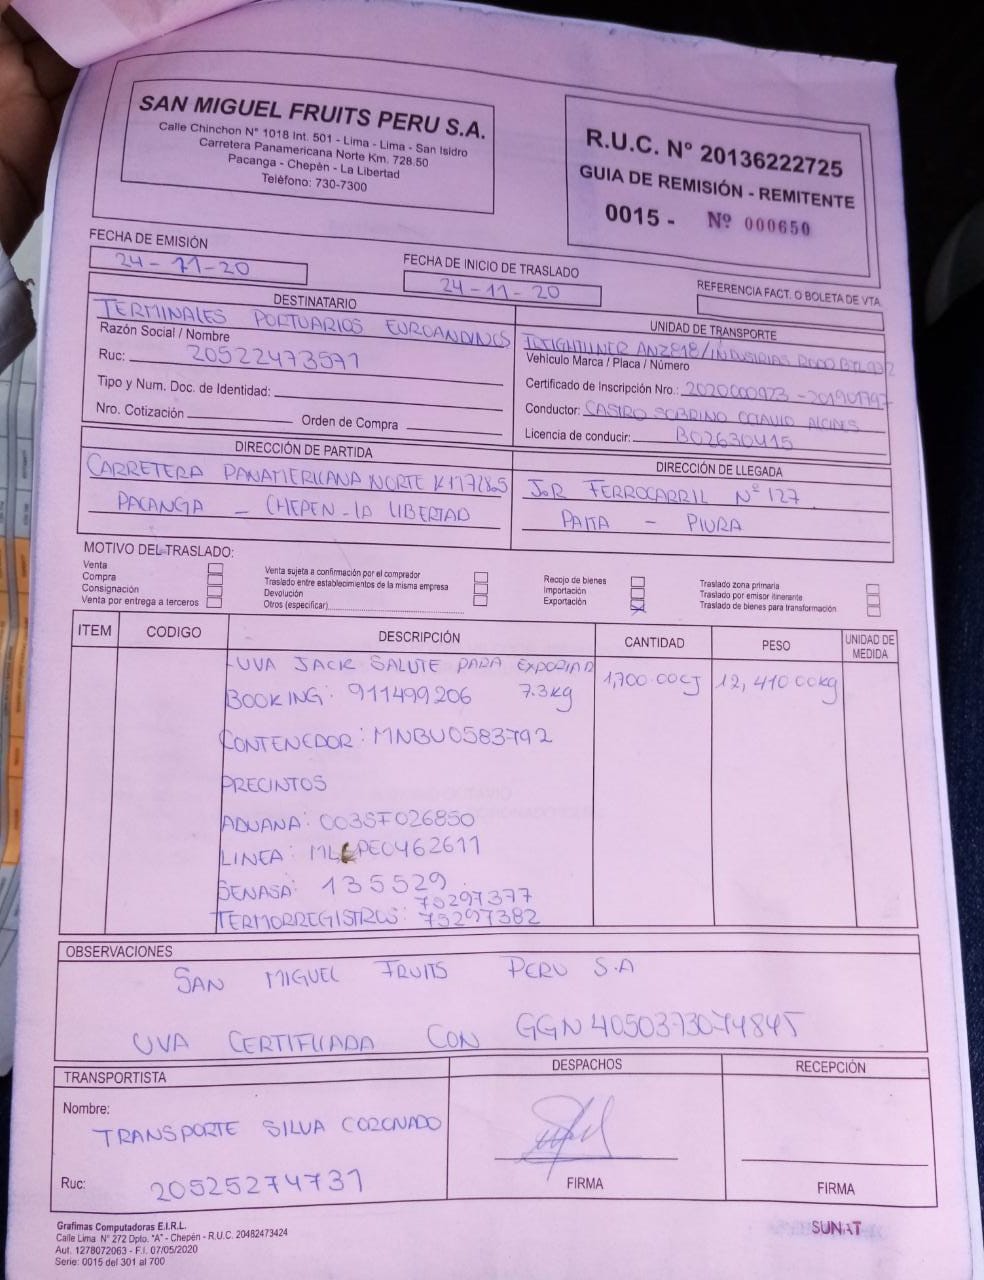 SAN MIGUEL FRUITS PERU S.A.
Calle Chinchon N° 1018 Int. 501 - Lima - Lima - San Isidro
Carretera Panamericana Norte Km. 728.50
Pacanga - Chepén - La Libertad
Teléfono: 730-7300
R.U.C. N° 20136222725
GUIA DE REMISIÓN - REMITENTE
0015 - Nº 000650
FECHA DE EMISIÓN
24-11-20
FECHA DE INICIO DE TRASLADO
24-11-20
REFERENCIA FACT. O BOLETA DE VTA.
DESTINATARIO
TERMINALES PORTUARIOS EUROANDINOS
Razón Social / Nombre
Ruc: 20522473571
Tipo y Num. Doc. de Identidad:
Nro. Cotización Orden de Compra
UNIDAD DE TRANSPORTE
FREIGHTLINER ANZ818/INDUSTRIAS
Vehículo Marca / Placa / Número
Certificado de Inscripción Nro.:
Conductor: CASTRO SOBRINO OCTAVIO
Licencia de conducir: B02630415
DIRECCIÓN DE PARTIDA
CARRETERA PANAMERICANA NORTE
PACANGA - CHEPEN - LA LIBERTAD
DIRECCIÓN DE LLEGADA
FERROCARRIL Nº 127
PAITA - PIURA
MOTIVO DEL TRASLADO:
Venta
Compra
Consignación
Venta por entrega a terceros
Venta sujeta a confirmación por el comprador
Traslado entre establecimientos de la misma empresa
Devolución
Otros (especificar)
Recojo de bienes
Importación
Exportación
Traslado zona primaria
Traslado por emisor itinerante
Traslado de bienes para transformación
ITEM CODIGO DESCRIPCIÓN CANTIDAD PESO UNIDAD DE MEDIDA
UVA JACK SALUTE PARA 1,700.00CJ 12,410.00kg
BOOKING: 911499206 7.3kg
CONTENEDOR: MNBU0583792
PRECINTOS
ADUANA: 003SF026850
LINEA:
SENASA: 135529
70297377
TERMORREGISTROS: 75297382
OBSERVACIONES
SAN MIGUEL FRUITS PERU S.A
UVA CERTIFICADA CON GGN 4050373074845
TRANSPORTISTA
Nombre:
TRANSPORTE SILVA CORONADO
Ruc: 20525274731
DESPACHOS
FIRMA
RECEPCIÓN
FIRMA
Grafimas Computadoras E.I.R.L.
Calle Lima N° 272 Dpto. "A" - Chepén - R.U.C. 20482473424
Aut. 1278072063 - F.I. 07/05/2020
Serie: 0015 del 301 al 700
SUNAT